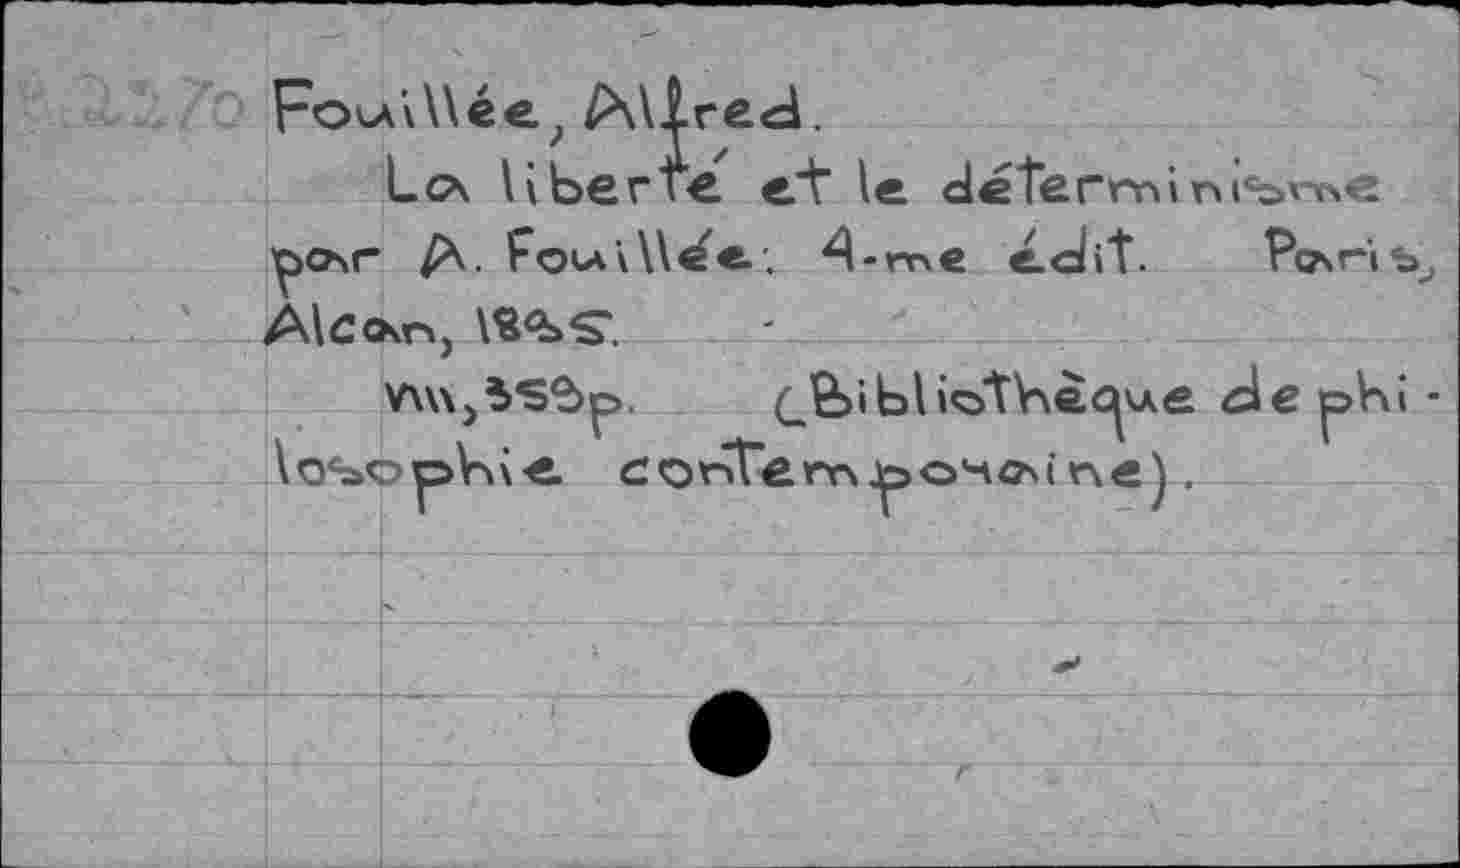 Fouillée, Alfred.
La liberté et le déterminisme
par A. Fouillée. 4-me édit. Paris,
Alcan, 1895.
VIII, 358p. (Bibliothèque de phi-
losophie contempoчaine).